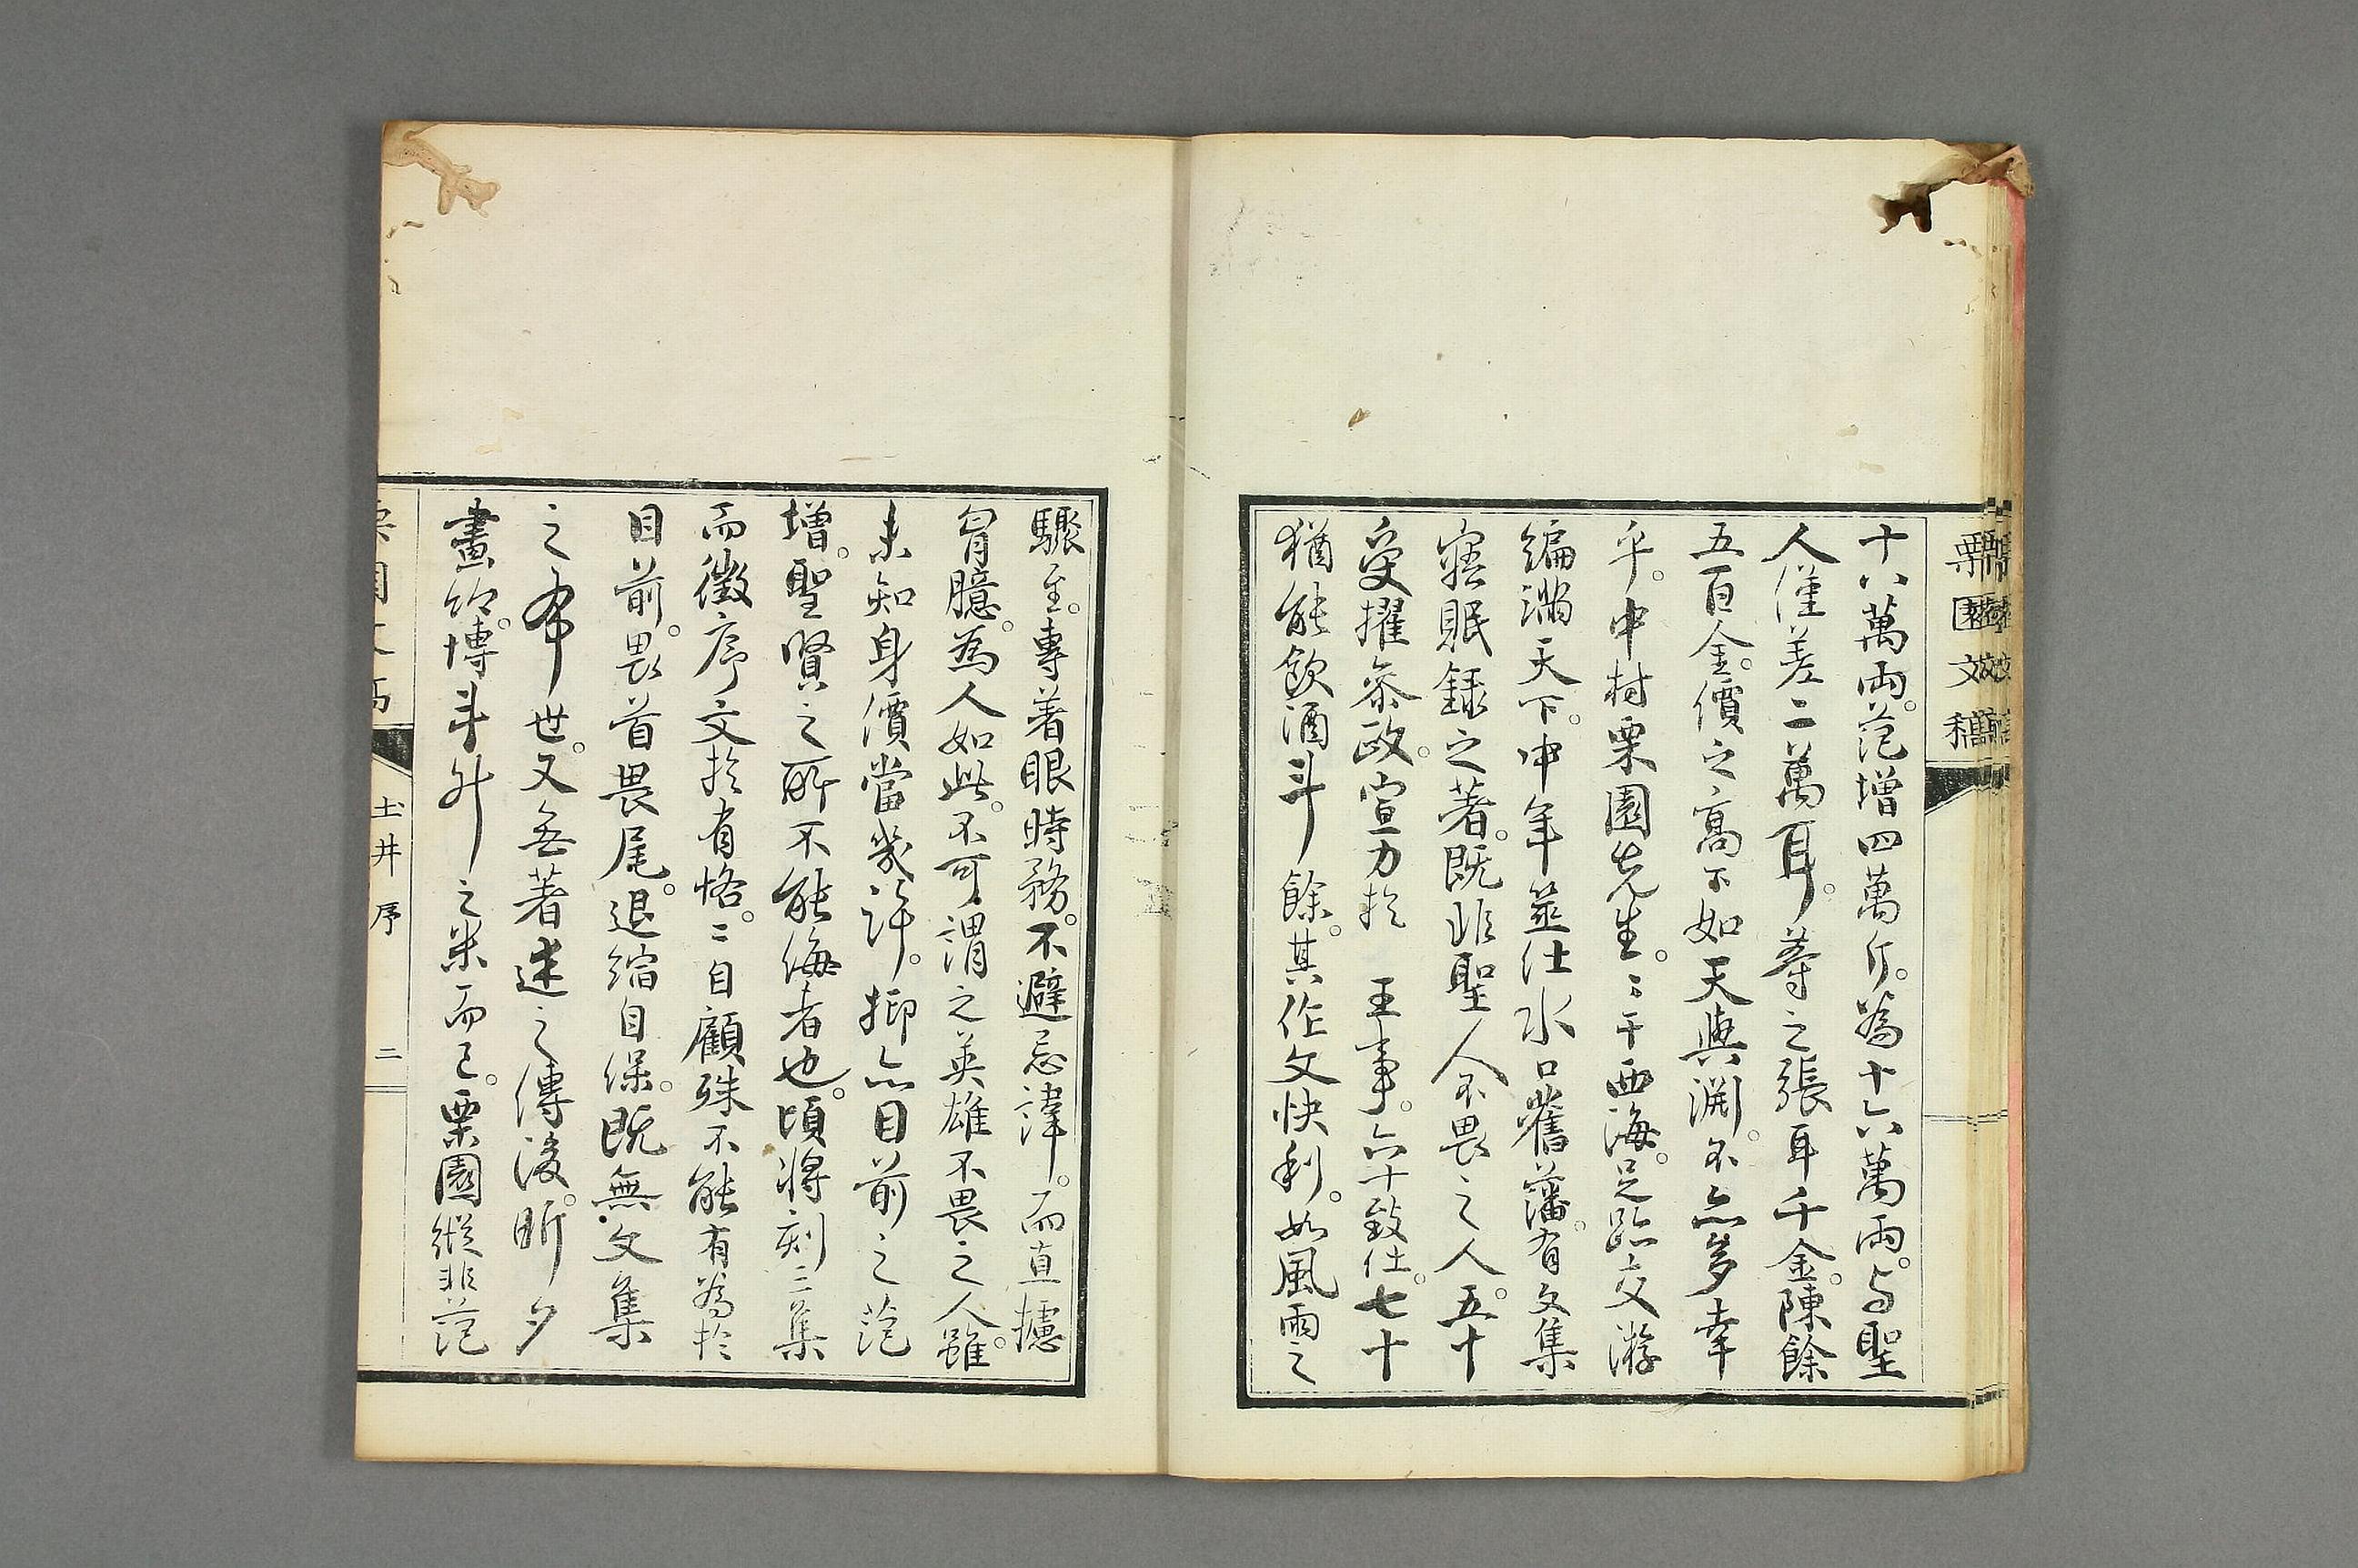 栗園文稿
十八萬兩。范增四萬斤。為十六萬兩。与聖
人僅差二萬耳。等之張耳千金。陳餘
五百金。價之高下如天與淵。不亦多幸
乎。中村栗園先生。〻干西海。足跡交游
編滿天下。中年筮仕水口舊藩。有文集
寤眠錄之著。既非聖人不畏之人。五十
受擢參政。宣力於 王事。六十致仕。七十
猶能飲酒斗餘。其作文快利。如風雨之
驟至。專著眼時務。不避忌諱。而直攄
胷臆。為人如此。不可謂之英雄不畏之人。雖
未知身價當幾許。抑亦目前之范
增。聖賢之所不能侮者也。頃將刻二集
而徵序文於有恪。〻自顧殊不能有為於
目前。畏首畏尾。退縮自保。既無文集
之布世。又無著述之傳後。昕夕
畫餅。博斗升之米而已。栗園縱非范
土井序
二